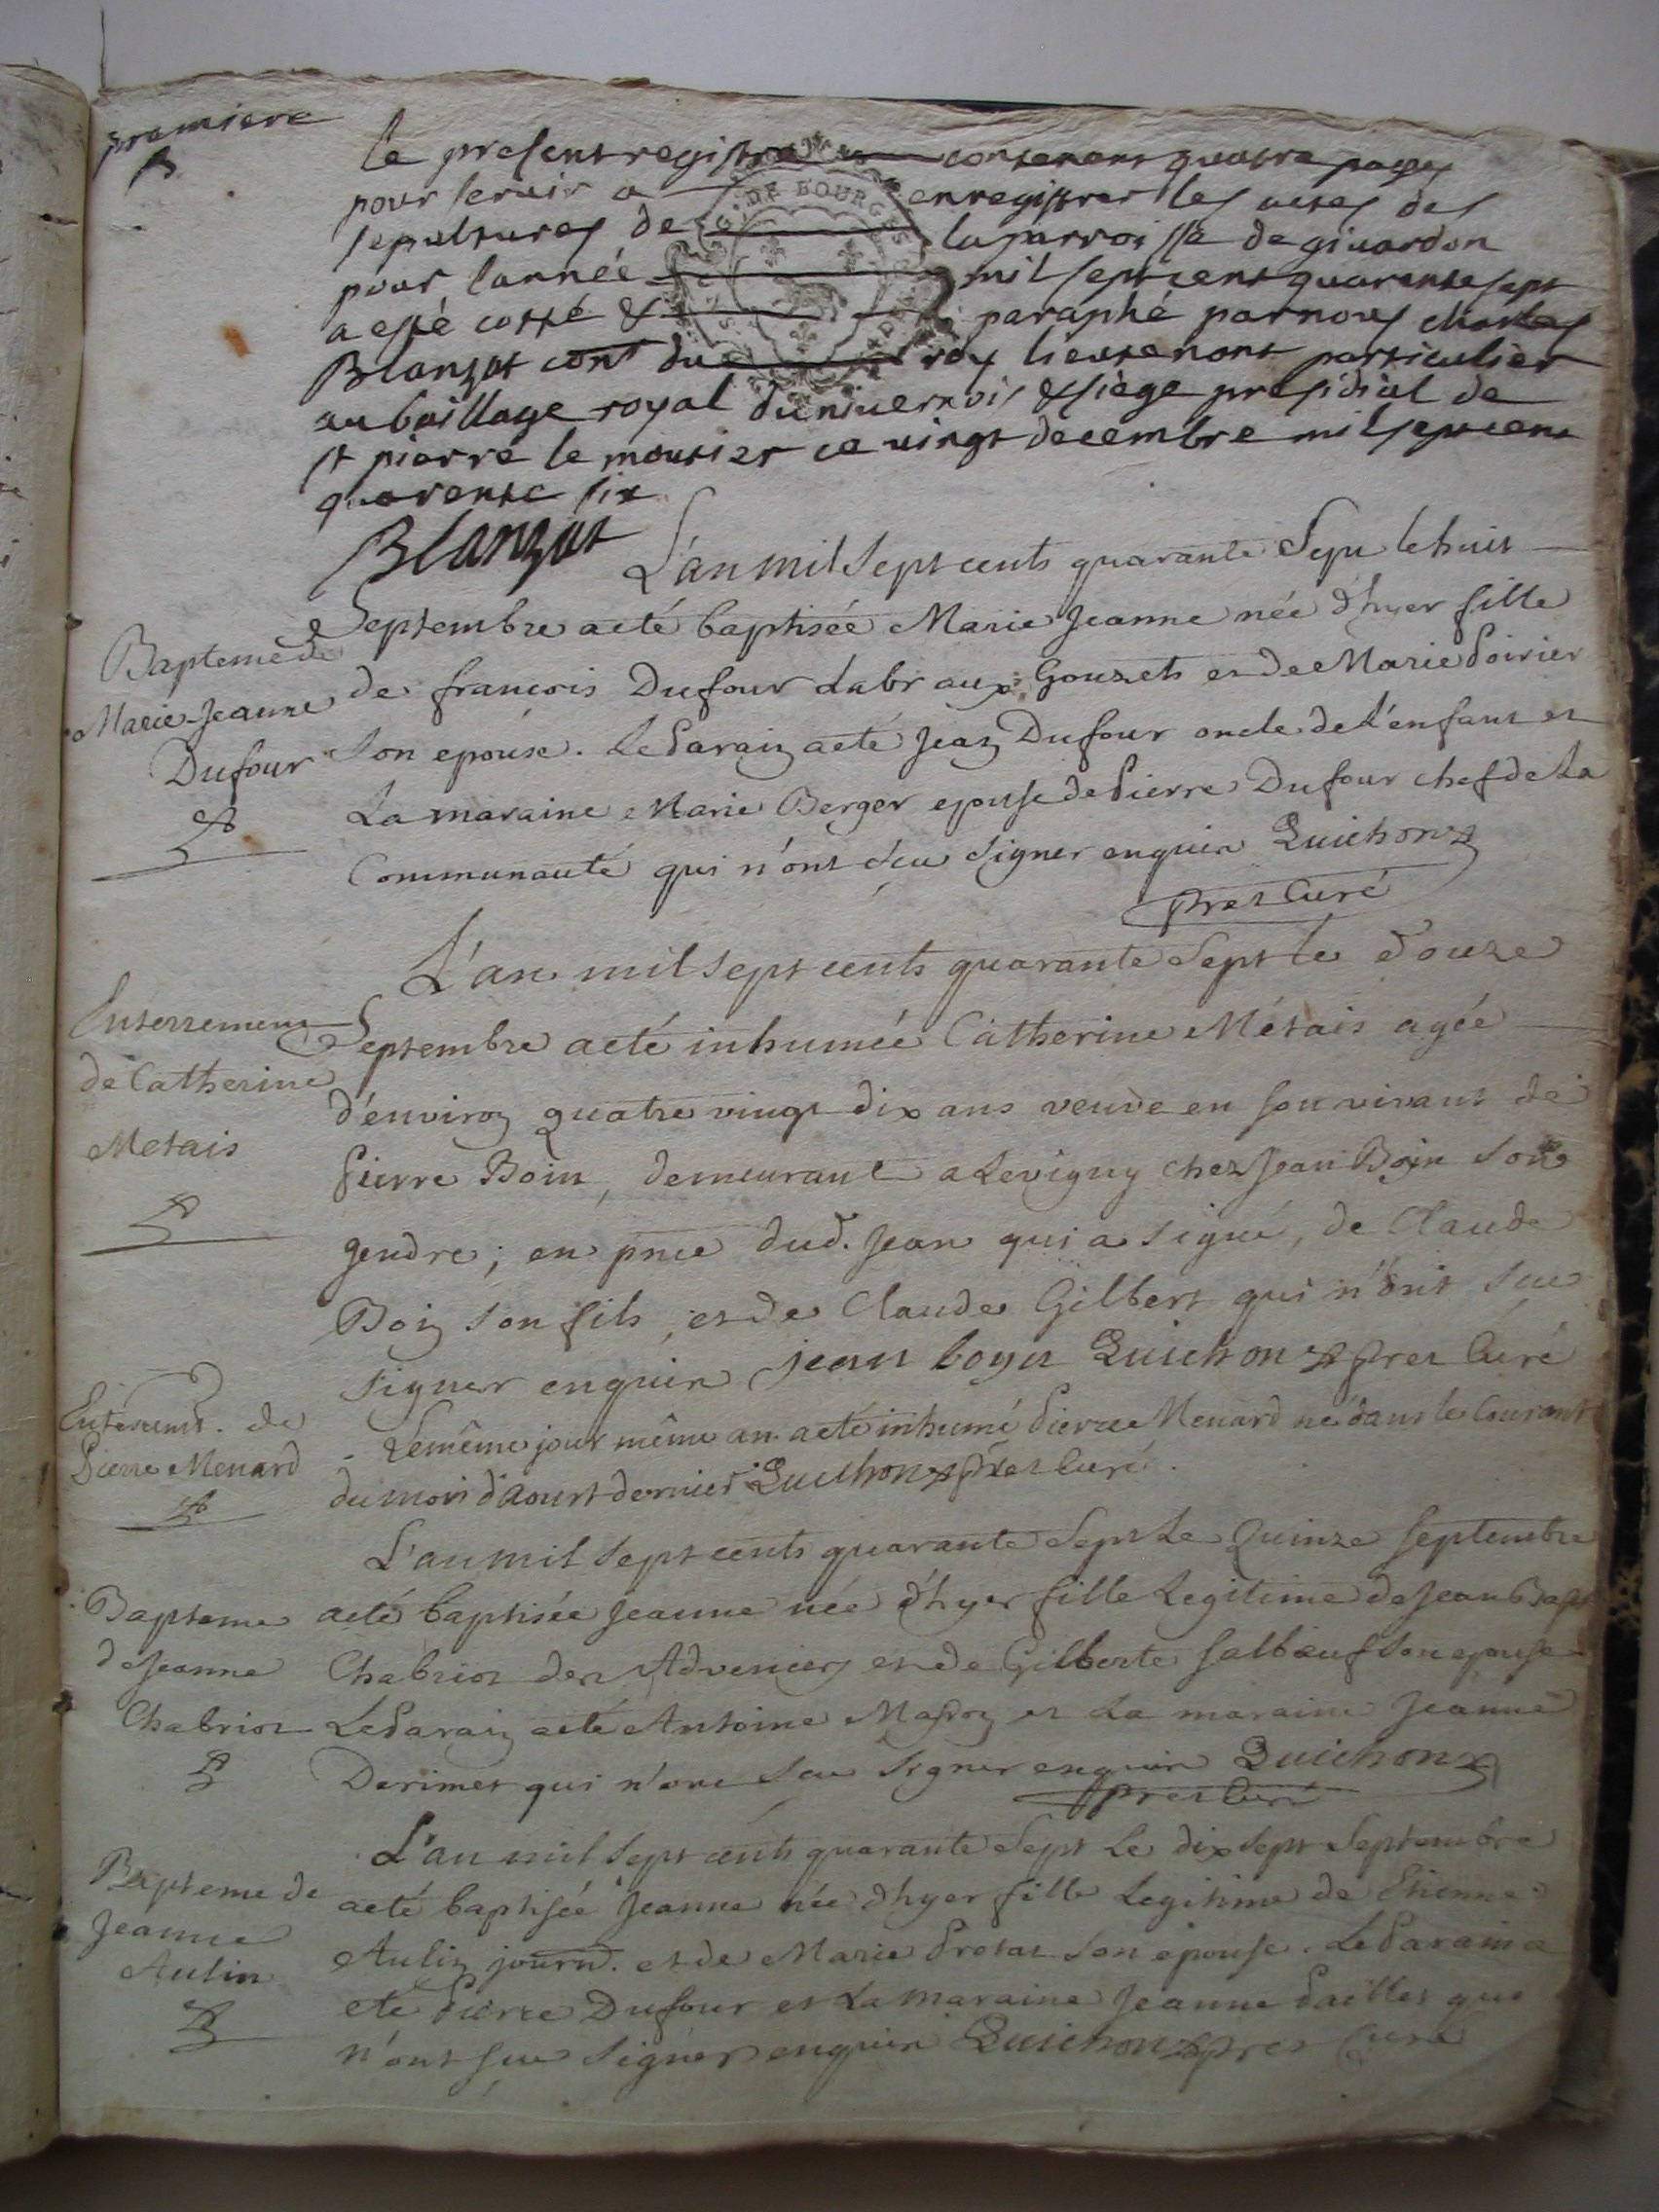 premiere
le present registre contenant quatre pages
pour servir a enregistrer les actes des
sepultures de la parroisse de givardon
pour l'année mil sept cent quarante sept
a esté cotté & paraphé par nous charles
Blanzat conr du roy lieutenant particulier
au baillage royal du nivernois & siege presidial de
st pierre le moutier ce vingt decembre mil sept cent
quarante six
Blanzat
G. DE BOURGES
L'an mil sept cents quarante Sept le huit
Bapteme de
Marie Jeanne
Dufour
Septembre a eté baptisée Marie Jeanne née d'hyer fille
de francois Dufour Labr aux Gouzets et de Marie Poirier
son epouse. Le Parain a eté Jean Dufour oncle de l'enfant et
La maraine Marie Berger epouse de Pierre Dufour chef de La
Communauté qui n'ont scu signer enquis Quichon
Pret Curé
L'an mil sept cents quarante Sept le douze
Enterrement
de Catherine
Metais
Septembre a eté inhumée Catherine Métais agée
d'environ quatre vingt dix ans veuve en son vivant de
Pierre Boin, demeurant a Levigny chez Jean Boin son
gendre; en pnce dud. Jean qui a signé, de Claude
Boin son fils, et de Claude Gilbert qui n'ont scu
signer enquis jean boyn Quichon Pret Curé
Enterremt. de
Pierre Menard
Le même jour même an a eté inhumé Pierre Menard né dans le Courant
du mois d'Aoust dernier Quichon Pret Curé.
L'an mil sept cents quarante Sept Le Quinze Septembre
Bapteme
de Jeanne
Chabriot
a eté baptisée Jeanne née d'hyer fille Legitime de Jean Bapt
Chabriot des et de Gilberte Salbœuf son epouse
Le Parain a eté Antoine et La maraine Jeanne
Derimet qui n'ont scu signer enquis Quichon
Pret Curé
L'an mil sept cents quarante Sept Le dix sept Septembre
Bapteme de
Jeanne
Aulin
a eté baptisée Jeanne née d'hyer fille Legitime de Etienne
Aulin journ. et de Marie Protat son epouse. Le Parain a
eté Pierre Dufour et La maraine Jeanne Paillet qui
n'ont scu signer enquis Quichon Pret Curé